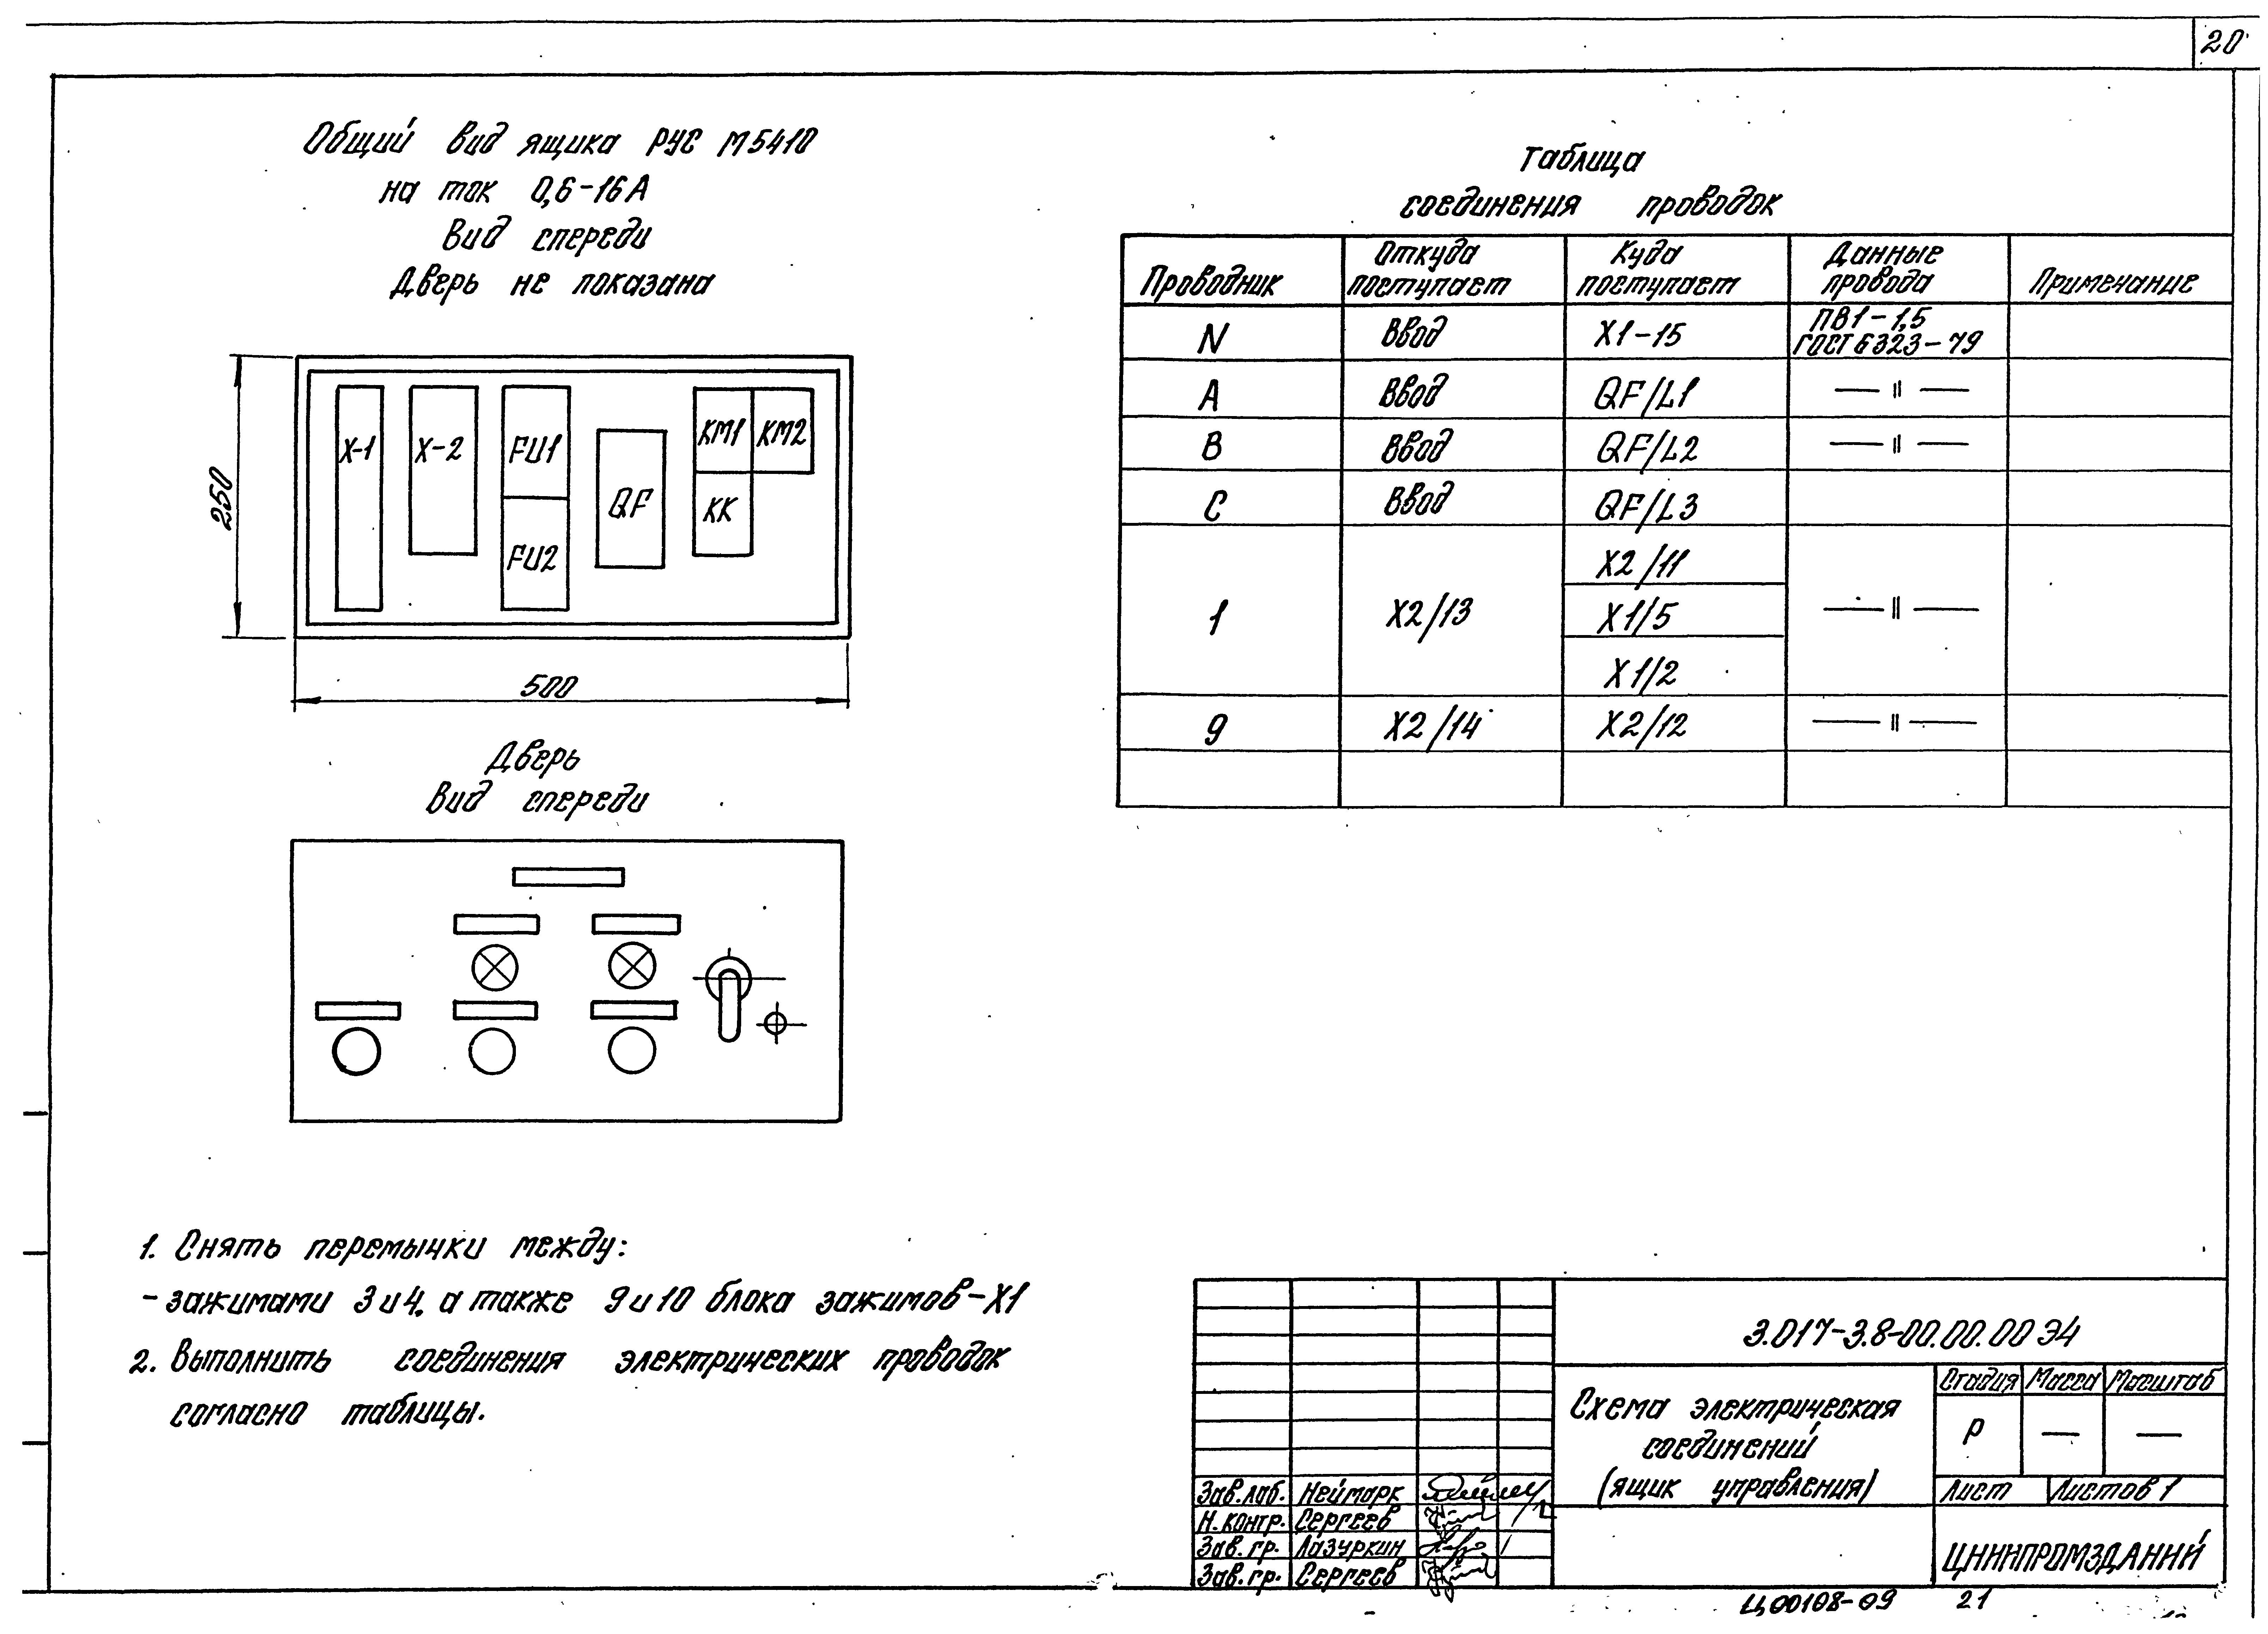 20
Общий вид ящика РУС М5410
на ток 0,6-16А
Вид спереди
Дверь не показана
Х-1
Х-2
FU1
FU2
QF
КМ1
КМ2
КК
250
500
Дверь
Вид спереди
Таблица
соединения проводок
Проводник
Откуда
поступает
Куда
поступает
Данные
провода
Примечание
N Ввод Х1-15 ПВ1-1,5
ГОСТ 6323-79
А Ввод QF/L1 — " —
В Ввод QF/L2 — " —
С Ввод QF/L3
1 Х2/13 Х2/11 — " —
Х1/5
Х1/2
9 Х2/14 Х2/12 — " —
1. Снять перемычки между:
- зажимами 3 и 4, а также 9 и 10 блока зажимов-Х1
2. Выполнить соединения электрических проводок
согласно таблицы.
3.017-3.8-00.00.00 Э4
Схема электрическая
соединений
(ящик управления)
Стадия Масса Масштаб
Р — —
Лист Листов 1
Зав.лаб. Неймарк
Н.контр. Сергеев
Зав.гр. Лазуркин
Зав.гр. Сергеев
ЦНИИПРОМЗДАНИЙ
Ц00108-09 21